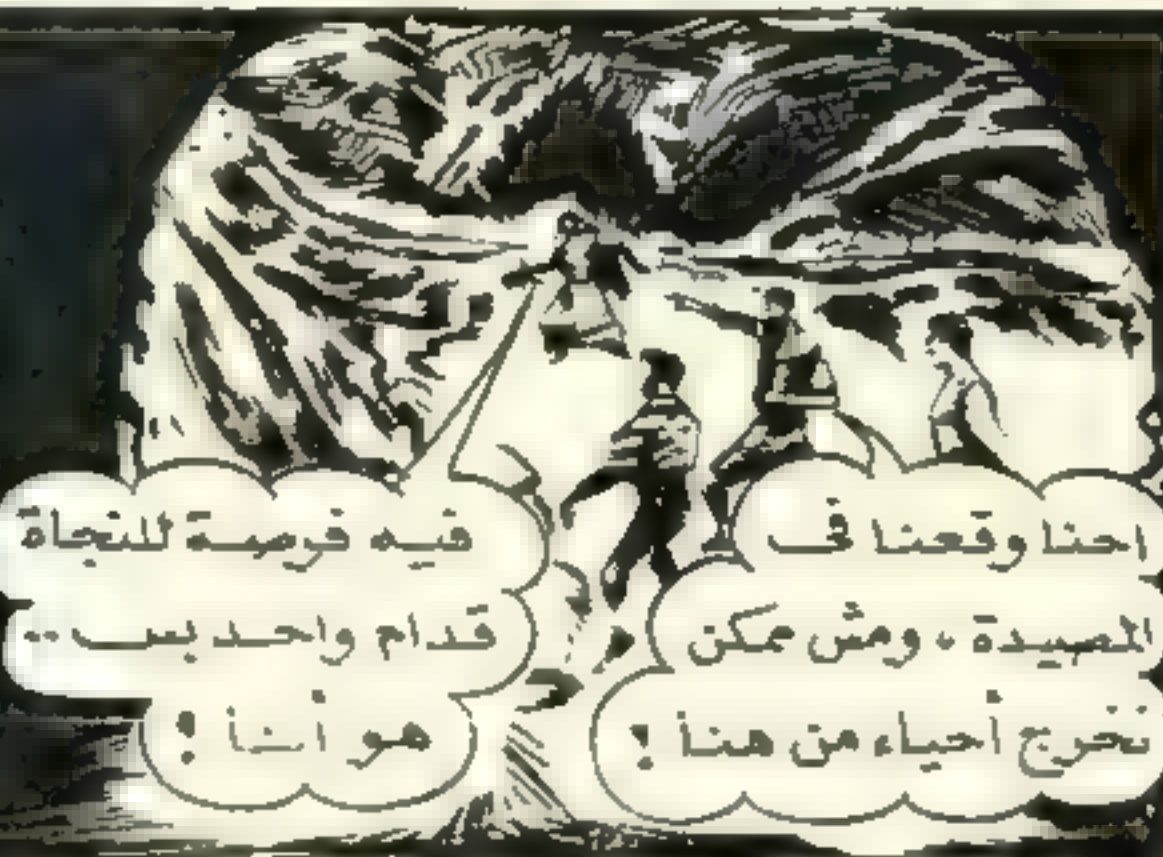 احنا وقعنا فى
المصيدة ، ومش ممكن
نخرج أحياء من هنا !
فيه فرصة للنجاة
قدام واحد بس ..
هو أنا !